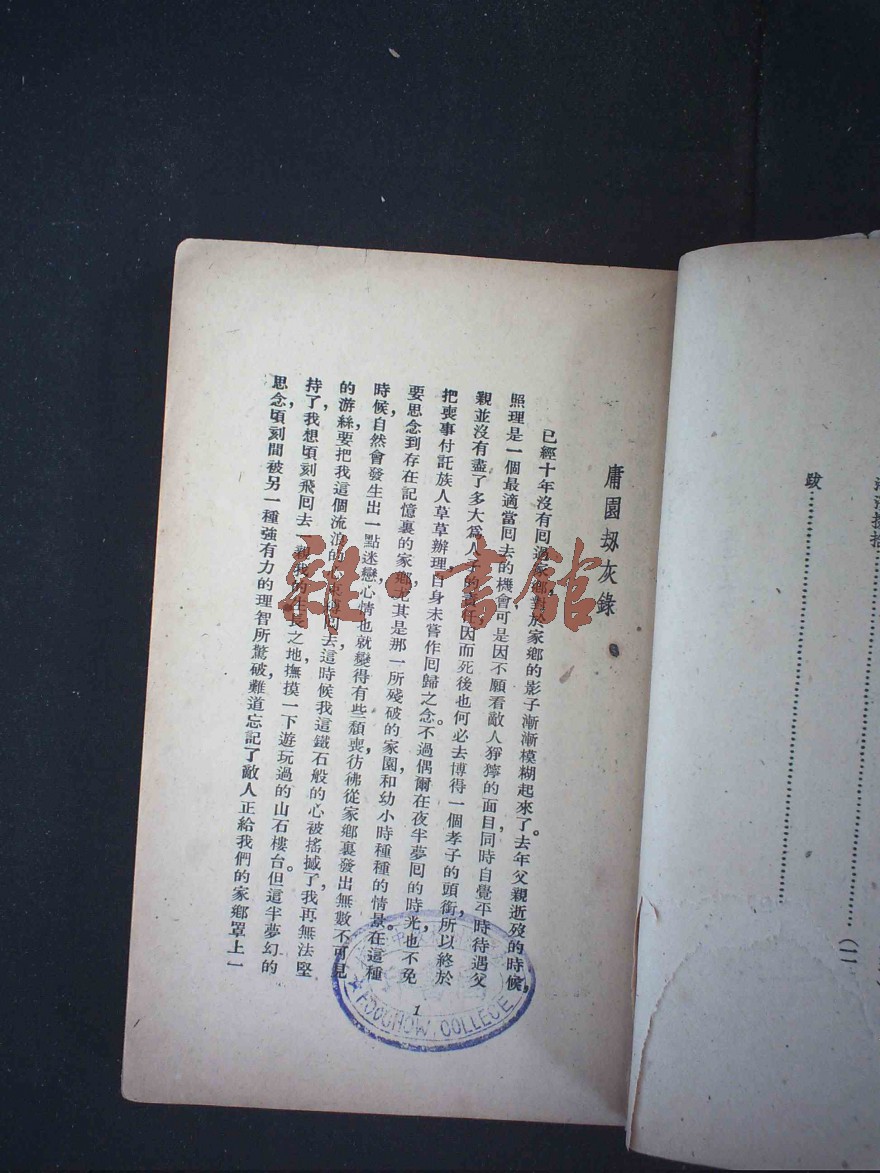 跋……………………(一)
庸園刼灰錄
已經十年沒有囘過家鄉，對於家鄉的影子漸漸模糊起來了。去年父親逝歿的時候，
照理是一個最適當囘去的機會可是因不願看敵人猙獰的面目同時自覺平時待遇父
親並沒有盡了多大爲人子的責任因而死後也何必去博得一個孝子的頭銜所以終於
把喪事付託族人草草辦理，自身未嘗作囘歸之念。不過偶爾在夜半夢囘的時光也不免
要思念到存在記憶裏的家鄉，尤其是那一所殘破的家園和幼小時種種的情景。在這種
時候，自然會發生出一點迷戀心情也就變得有些頹喪，彷彿從家鄉裏發出無數不可見
的游絲，要把我這個流泊的心束縛囘去這時候我這鐵石般的心被搖撼了我再無法堅
持了，我想頃刻飛囘去一親我的生長之地撫摸一下遊玩過的山石樓台但這半夢幻的
思念，頃刻間被另一種強有力的理智所驚破，難道忘記了敵人正給我們的家鄉罩上一
1
FOOCHOW COLLEGE
雜·書館